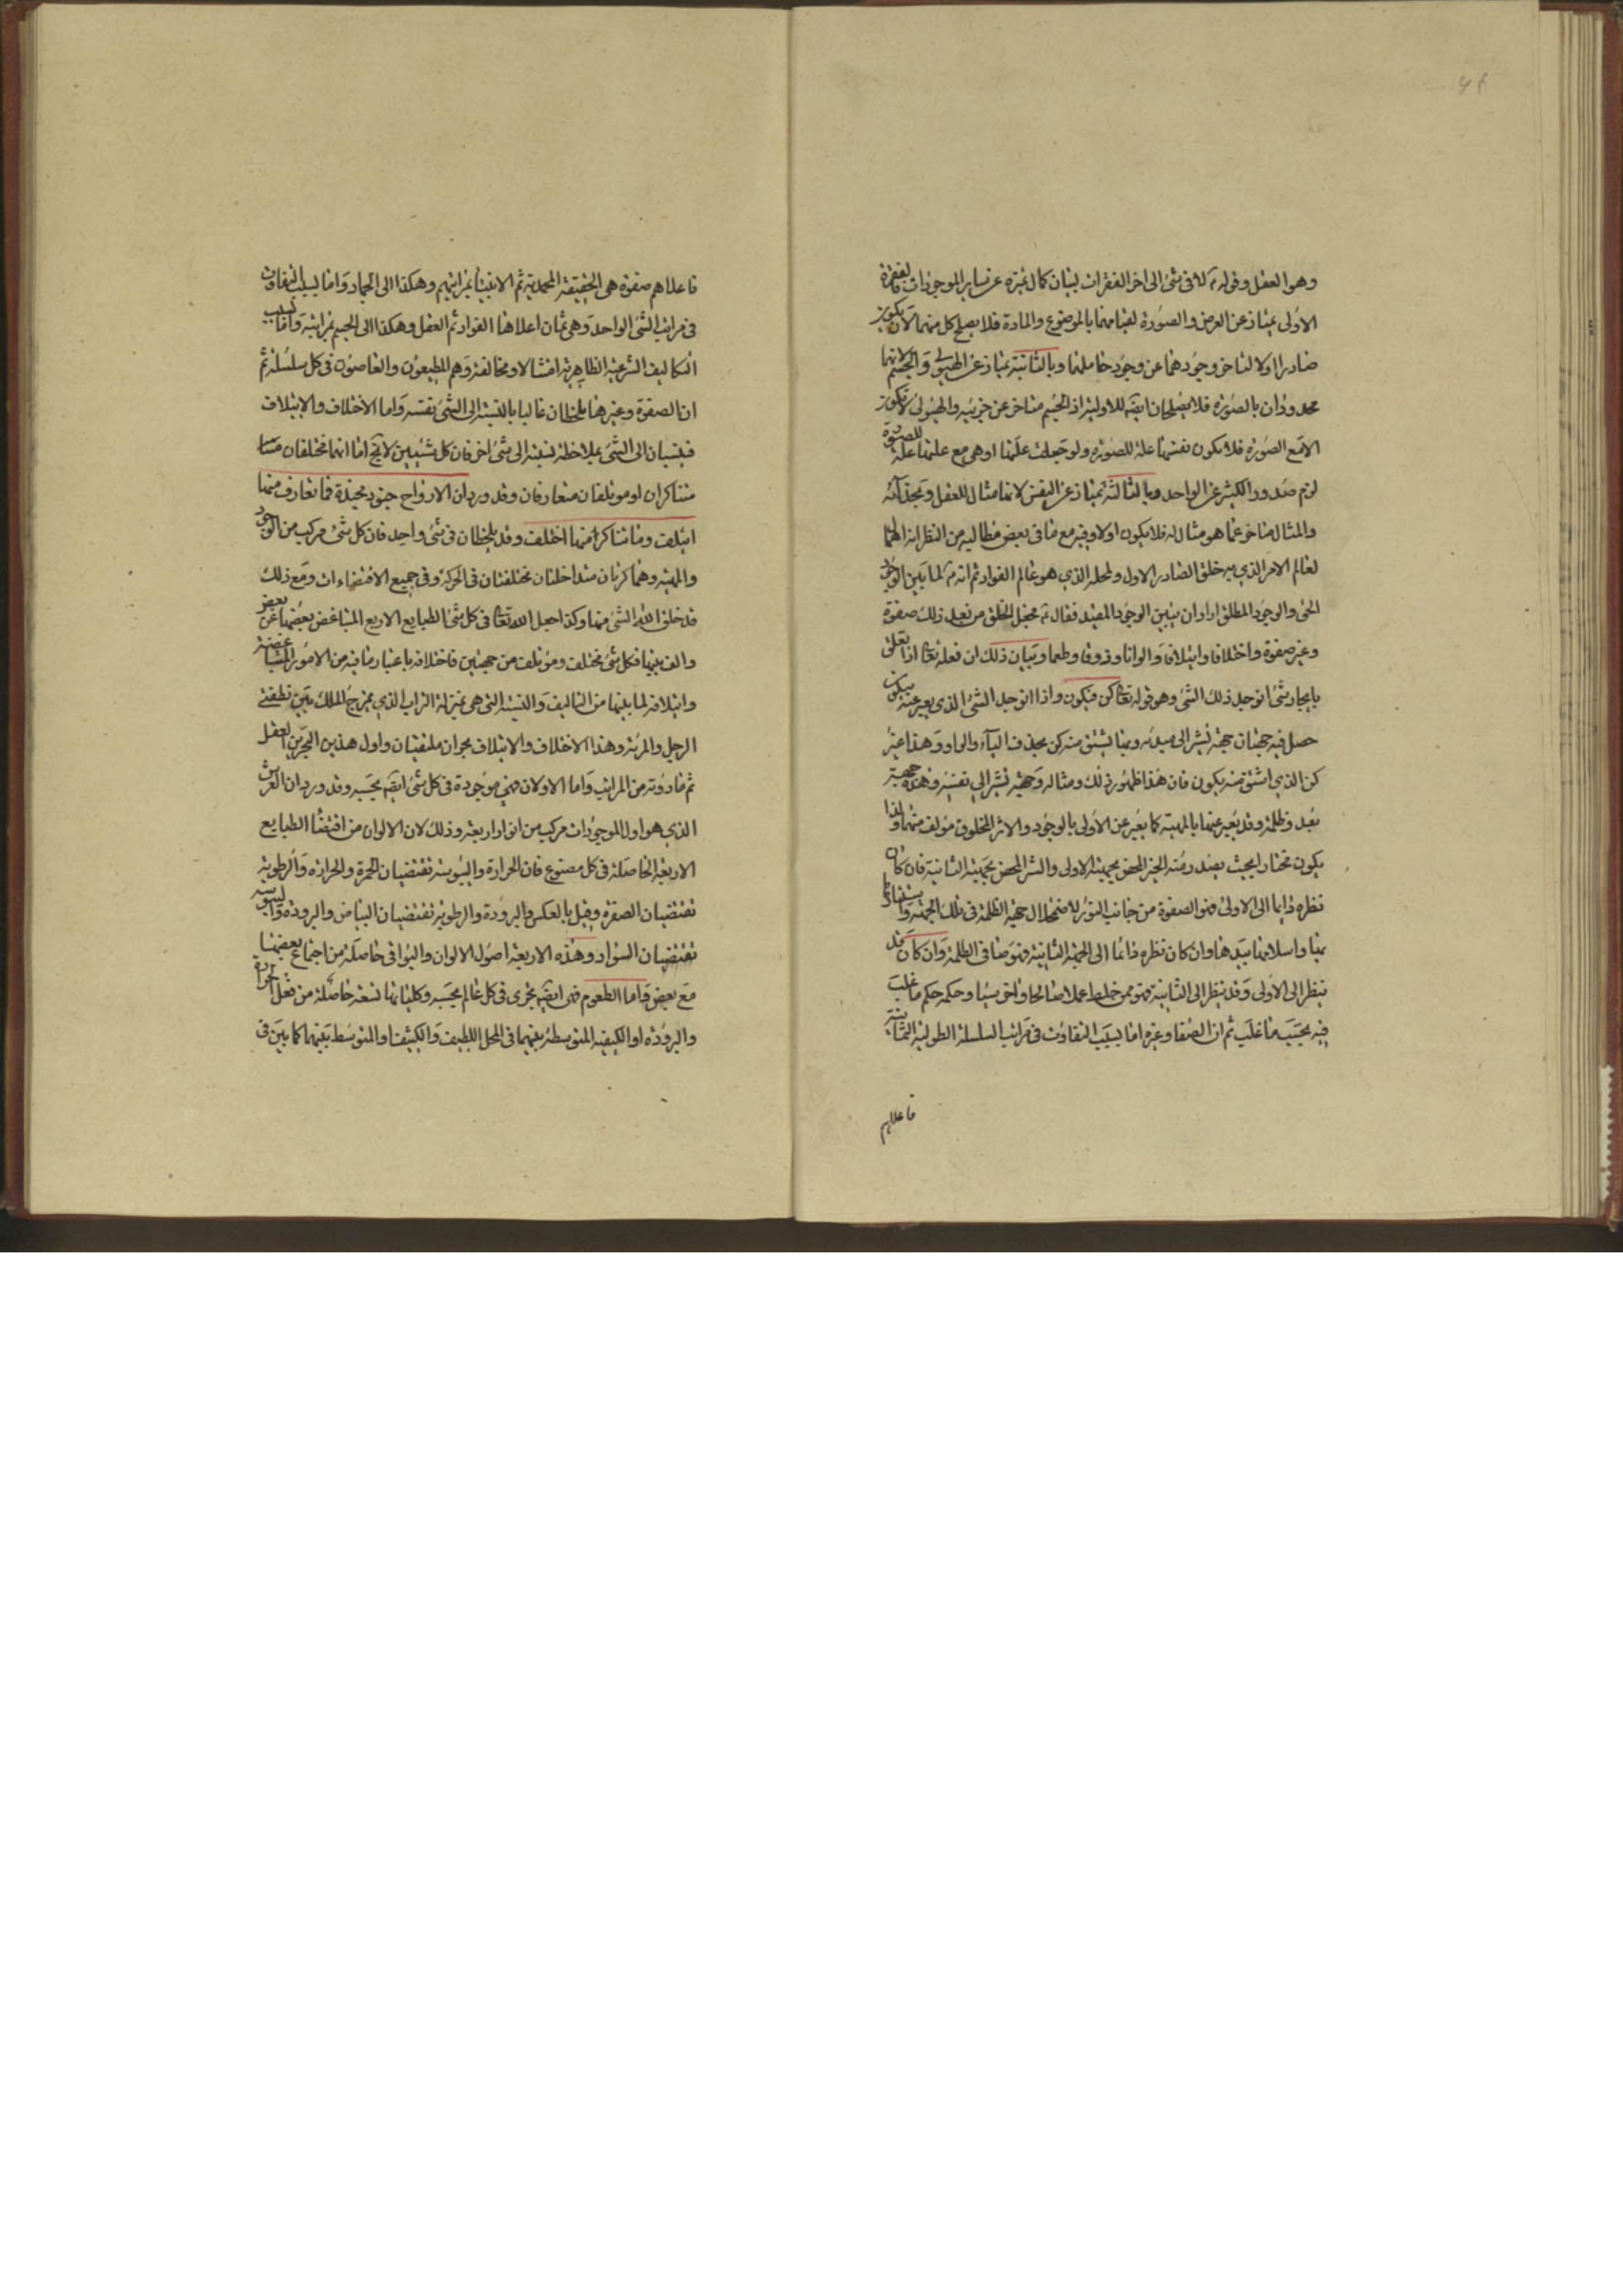 وهو العقل وقوله ع لا فى شئ الى اخر الفقرات لبيان كمال تميزه عن ساير الموجودات فبفقرة
الاولى يمتاز عن العرض والصورة لقيامهما بالموضوع والمادة فلا يصلح كل منهما لان يكون
صادرا اولا لتاخر وجودهما عن وجود حاملهما وبالثانية يمتاز عن الهيولى والجسم لانهما
محدودان بالصورة فلا يصلحان ايضا للاولية اذ الجسم متاخر عن جزئيه والهيولى لا تكون
الا مع الصورة فلا تكون نفسها علة للصورة ولو جعلت علتها او هى مع علتها علة للصورة
لزم صدور الكثير عن الواحد وبالثالثة يمتاز عن النفس لانها مثال للعقل
والمثال متاخر عما هو مثال له فلا يكون اولا وفيه مع ما فى بعض مطالبه من النظر انه
لعالم الامر الذي به خلق الصادر الاول ولمحله الذي هو عالم الفواد ثم انه ع لما بين الوجود
الحق والوجود المطلق اراد ان يبين الوجود المقيد فقال ع فجعل الخلق من بعد ذلك صفوة
وغير صفوة واختلافا وايتلافا والوانا وذوقا وطعما وبيان ذلك ان فعله تعالى اذا تعلق
بايجاد شئ انوجد ذلك الشئ وهو قوله تعالى كن فيكون واذا انوجد الشئ الذي يعبر عنه بيكون
حصل فيه جهتان جهة تشير الى مبدئه وبها يشتق منه كن بحذف الياء والواو وهذا غير
كن الذي اشتق منه يكون فان هذا ظهور ذلك ومثاله وجهة تشير الى نفسه وهذه جهة
بعد وظلمة وقد يعبر عنها بالمهية كما يعبر عن الاولى بالوجود والاثر المخلوق مؤلف منهما ولذا
يكون مختارا بحيث يصدر منه الخير المحض بجهته الاولى والشر المحض بجهته الثانية فان كان
نظره دايما الى الاولى فهو الصفوة من جانب النور لاضمحلال جهة الظلمة فى تلك الجهة
بيدها وان كان نظره دائما الى الجهة الثانية فهو صاف فى الظلمة وان كان قد
ينظر الى الاولى وقد ينظر الى الثانية فهو ممن خلط عملا صالحا واخر سيئا وحكمه حكم ما غلب
فيه بحسب ما غلب ثم ان الصفا وغيره اما بسبب التفاوت فى مراتب السلسلة الطولية الثمانية
فاعلاهم
فاعلاهم صفوة هى الحقيقة المحمدية ثم الانبيا بمراتبهم وهكذا الى الجماد واما بسبب التفاوت
فى مراتب الشئ الواحد وهى ثمان اعلاها الفواد ثم العقل وهكذا الى الجسم بمراتبه واما بسبب
التكاليف الشرعية الظاهرية امتثالا ومخالفة وهم المطيعون والعاصون فى كل سلسلة ثم
ان الصفوة وغيرها يلحظان غالبا بالنسبة الى الشئ نفسه واما الاختلاف والايتلاف
فينسبان الى الشئ بملاحظة نسبته الى شئ اخر فان كل شيئين لا يخ اما انهما مختلفان
متناكران او موتلفان متعارفان وقد ورد ان الارواح جنود مجندة فما تعارف منها
ائتلف وما تناكر منها اختلف وقد يلحظان فى شئ واحد فان كل شئ مركب من الوجود
والمهية وهما كرتان متداخلتان مختلفتان فى الحركة وفى جميع الاقتضاءات ومع ذلك
قد خلق الله الشئ منهما وكذا جعل الله تعالى فى كل شئ الطبايع الاربع المتباغض بعضها عن بعض
والف بينها فكل شئ مختلف ومؤتلف من جهتين فاختلافه باعتبار ما فيه من الامور المتباغضة
وايتلافه لما بينها من التاليف والنسبة التى هى بمنزلة التراب الذي يمزجه الملك بين نطفتى
الرجل والمرئة وهذا الاختلاف والايتلاف بحران ملتقيتان واول هذين البحرين العقل
ثم ما دونه من المراتب واما الاولان فهى موجودة فى كل شئ ايضا بحسبه وقد ورد ان العرش
الذي هو اول الموجودات مركب من انوار اربعة وذلك لان الالوان من اقتضا الطبايع
الاربعة الحاصلة فى كل مصنوع فان الحرارة واليبوسة تقتضيان الحمرة والحرارة والرطوبة
تقتضيان الصفرة وقيل بالعكس والبرودة والرطوبة تقتضيان البياض والبرودة واليبوسة
تقتضيان السواد وهذه الاربعة اصول الالوان والبواقى حاصلة من اجتماع بعضها
مع بعض واما الطعوم فهى ايضا تجرى فى كل عالم بحسبه وكلياتها تسعة حاصلة من فعل الحرارة
والبرودة او الكيفية المتوسطة بينهما فى المحل اللطيف والكثيف والمتوسط بينهما كما بين فى